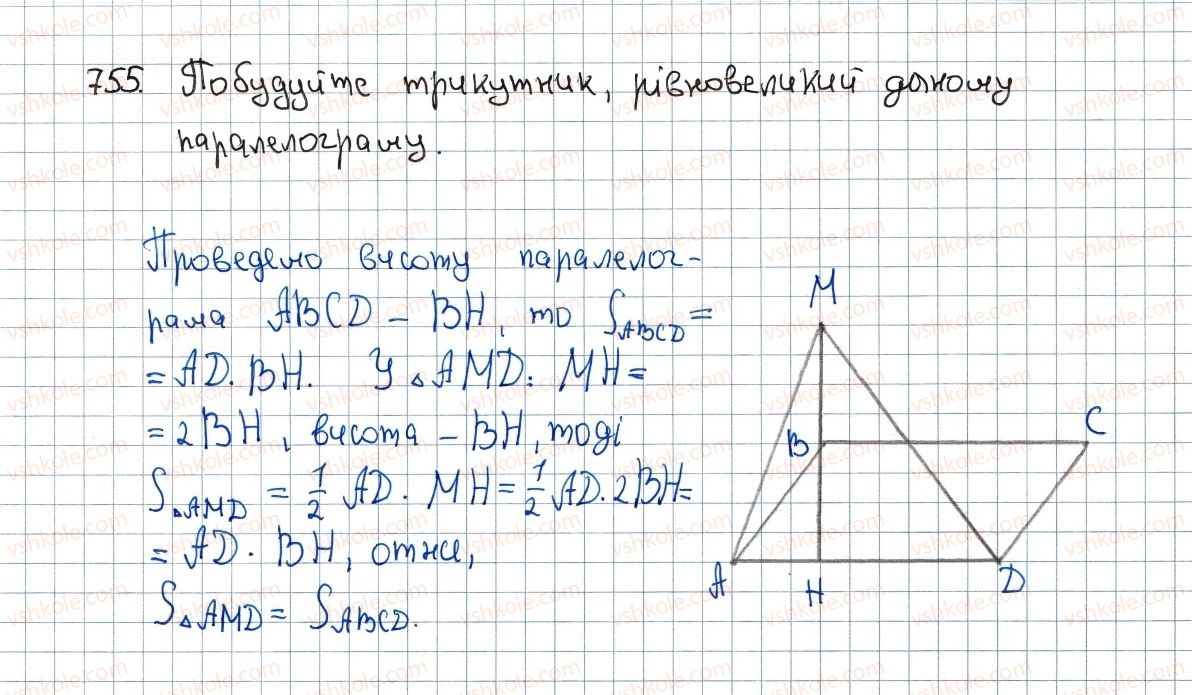 755. Побудуйте трикутник, рівновеликий даному
паралелограму.
Проведемо висоту паралелог-
рама ABCD – BH, то S_ABCD =
= AD · BH. У △AMD: MH =
= 2BH, висота – BH, тоді
S_△AMD = 1/2 AD · MH = 1/2 AD · 2BH =
= AD · BH, отже,
S_△AMD = S_ABCD.
M
B
C
A
H
D
vshkole.com